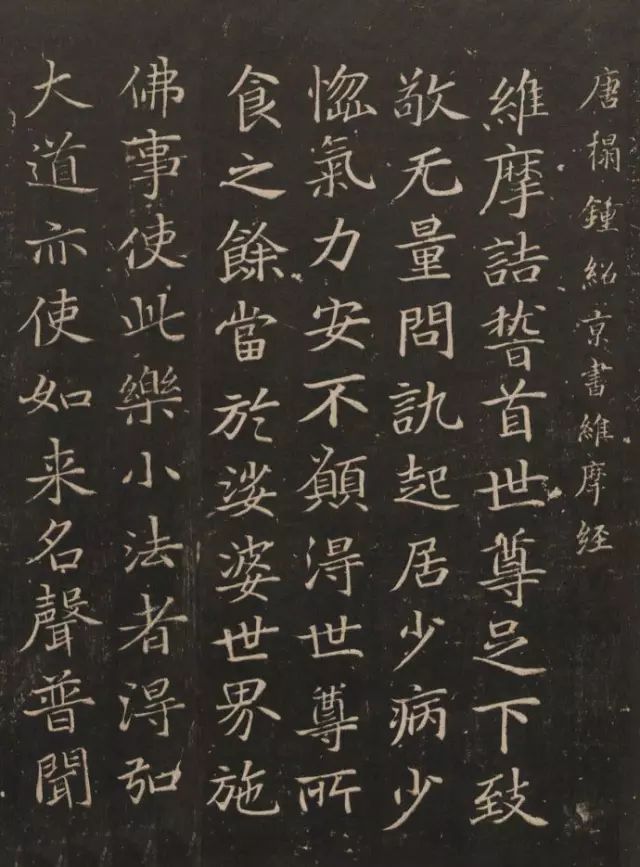 唐搨鍾紹京書維摩经
維摩詰稽首世尊足下致
敬无量問訊起居少病少
惱氣力安不願得世尊所
食之餘當於娑婆世界施
佛事使此樂小法者得弘
大道亦使如来名聲普聞